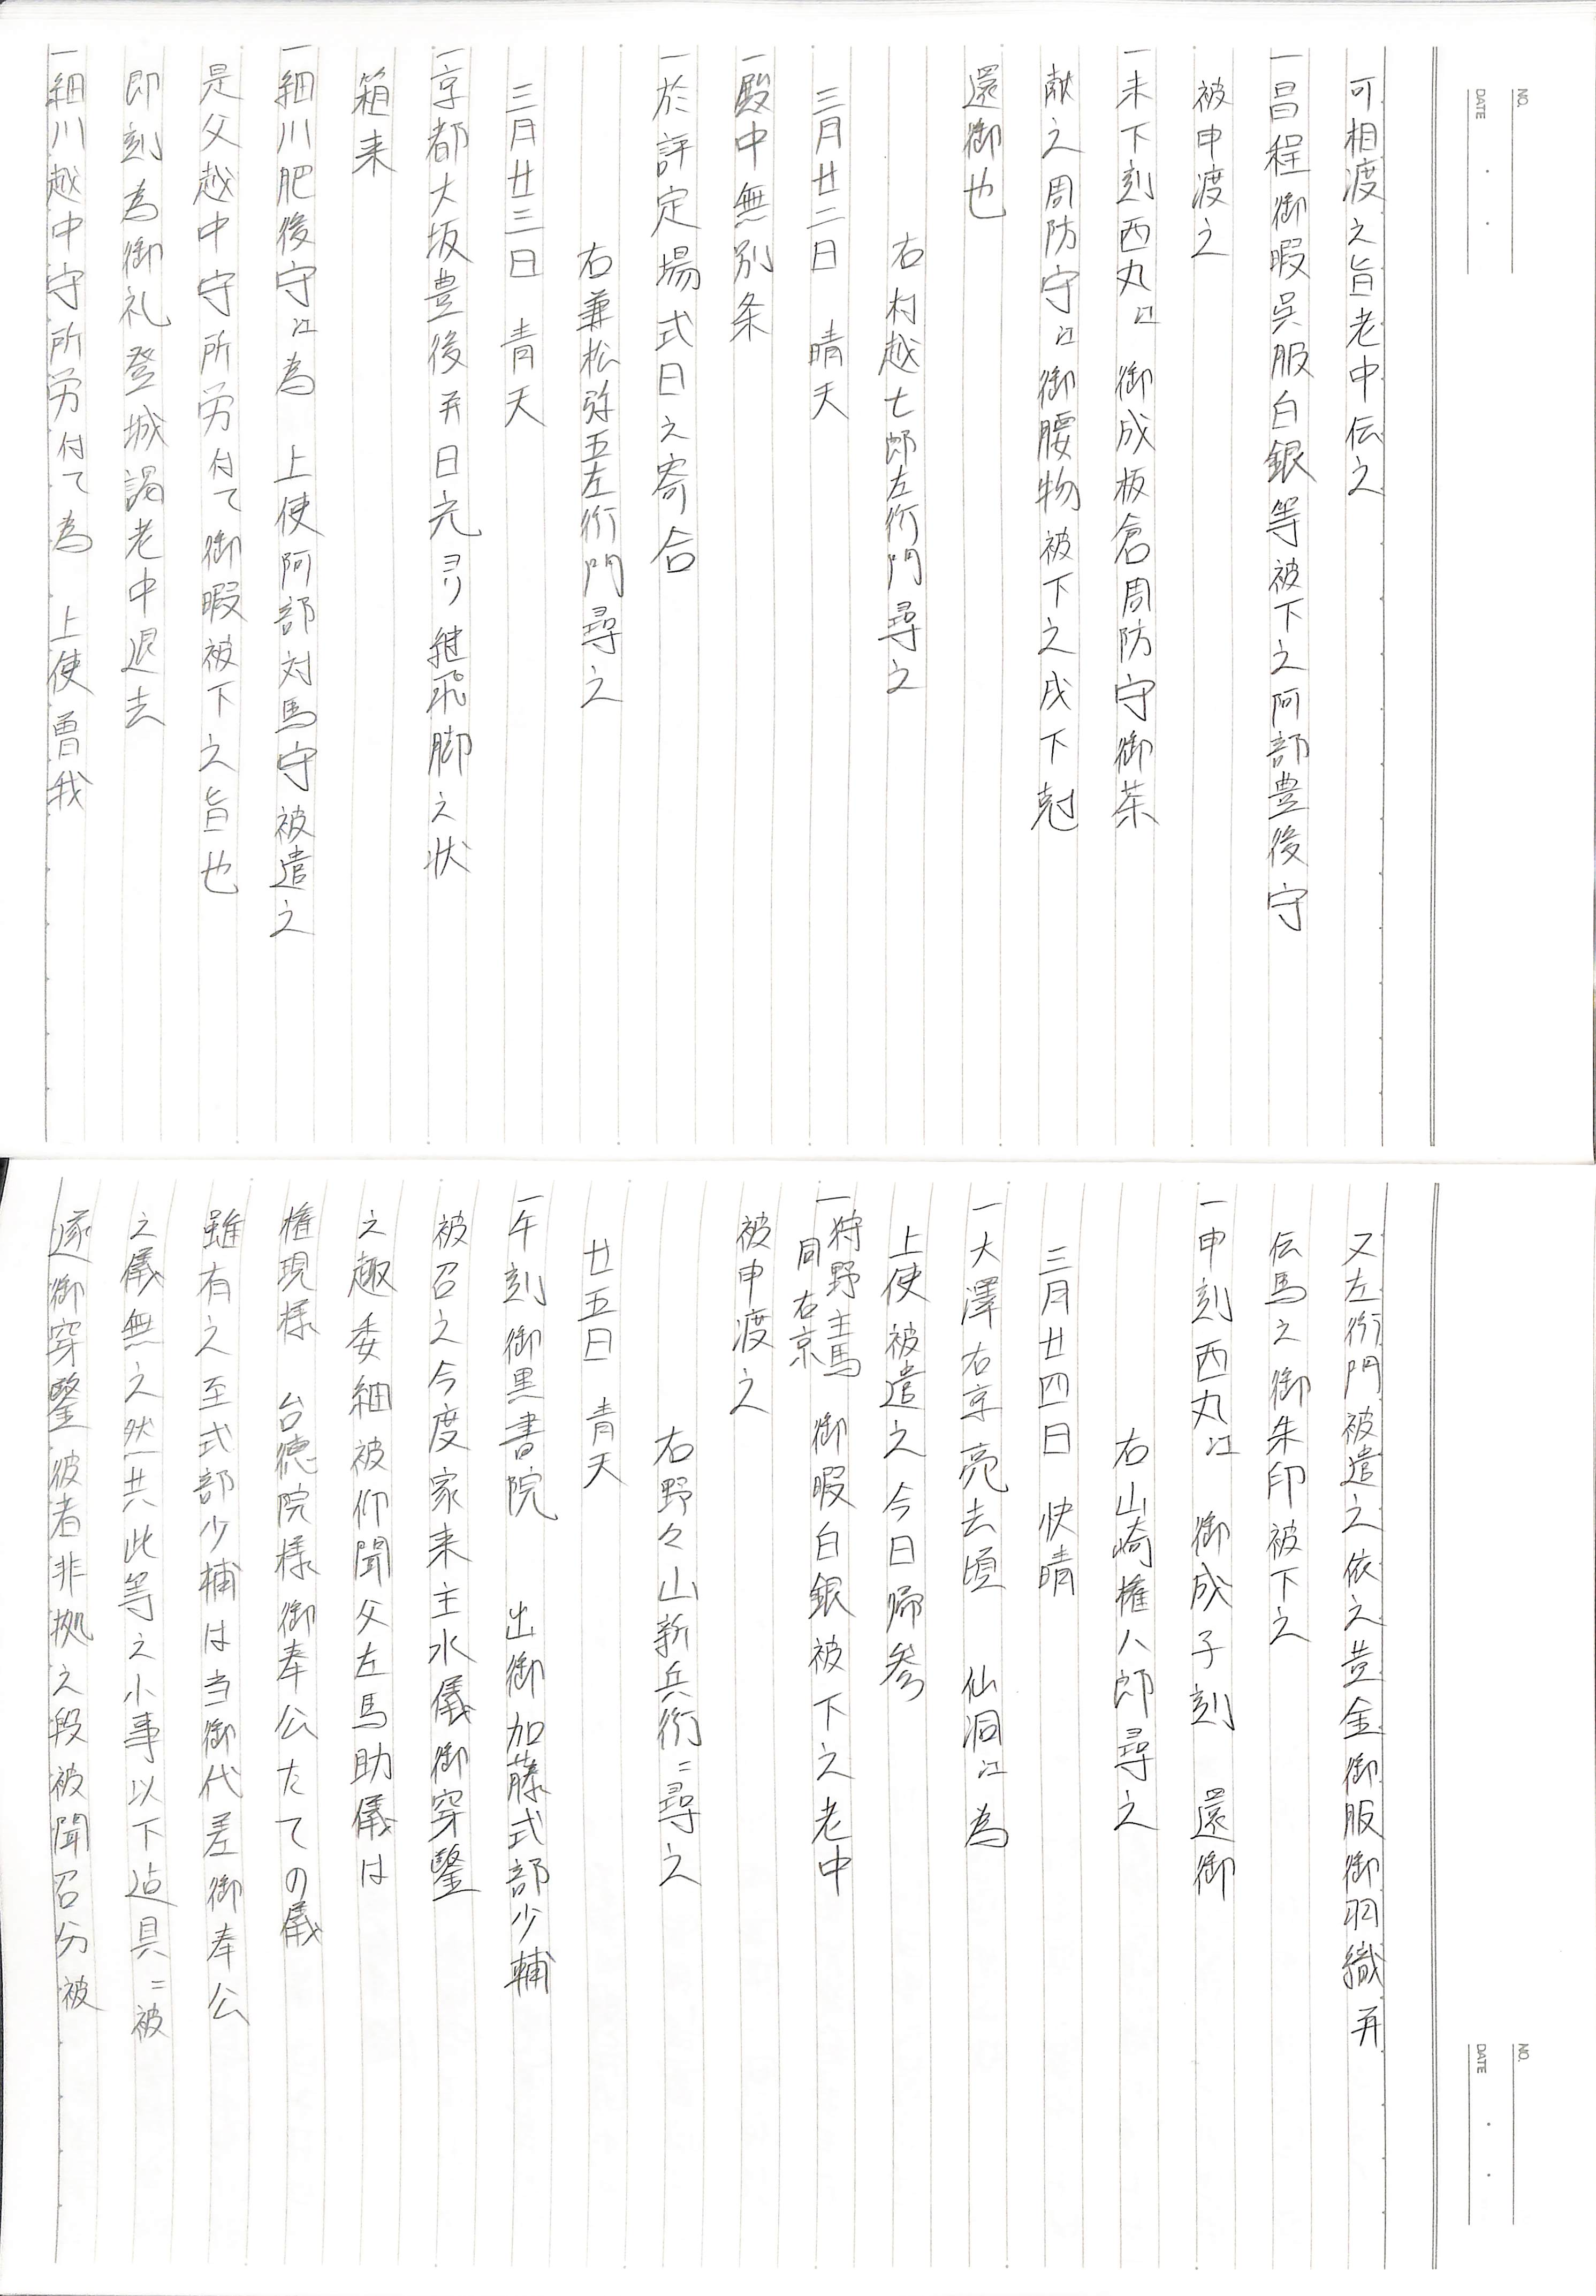 NO.
DATE
可相渡之旨老中伝之
一昌程御暇呉服白銀等被下之阿部豊後守
被申渡之
一未下刻西丸江 御成板倉周防守御茶
献之周防守江御腰物被下之戌下剋
還御也
右村越七郎左衛門尋之
三月廿二日 晴天
一殿中無別条
一於評定場式日之寄合
右兼松弥五左衛門尋之
三月廿三日 青天
一京都大坂豊後府内日光ゟ継飛脚之状
箱来
一細川肥後守江為 上使阿部対馬守被遣之
是父越中守所労付て御暇被下之旨也
即刻為御礼登城謁老中退去
一細川越中守所労付て為 上使曽我
NO.
DATE
又左衛門被遣之依之黄金御服御羽織并
伝馬之御朱印被下之
一申刻西丸江 御成子刻 還御
右山崎権八郎尋之
三月廿四日 快晴
一大澤右京亮去頃 仙洞江為
上使被遣之今日帰参
一狩野主馬同右京 御暇白銀被下之老中
被申渡之
右野々山新兵衛ニ尋之
廿五日 青天
一午刻御黒書院 出御加藤式部少輔
被召之今度家来主水儀御穿鑿
之趣委細被仰聞父左馬助儀は
権現様 台徳院様御奉公たての儀
雖有之至式部少輔は当御代差御奉公
之儀無之然共此等之小事以下迠具ニ被
遂御穿鑿彼者非拠之段被聞召分被